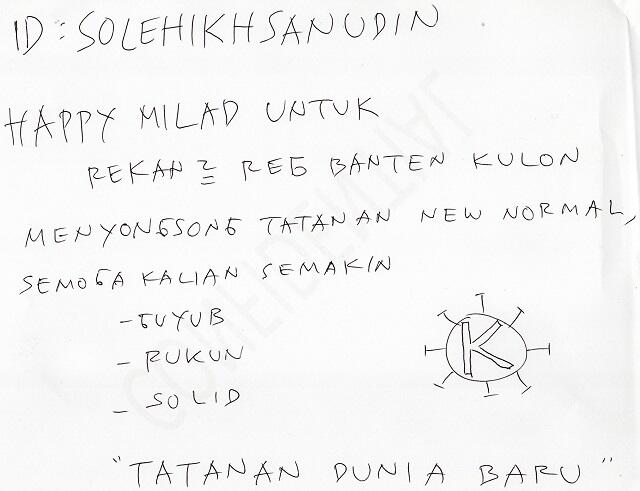 ID : SOLEHIKHSANUDIN
HAPPY MILAD UNTUK
REKAN2 REG BANTEN KULON
MENYONGSONG TATANAN NEW NORMAL,
SEMOGA KALIAN SEMAKIN
- GUYUB
- RUKUN
- SOLID
K
"TATANAN DUNIA BARU"
CONFIDENTIAL